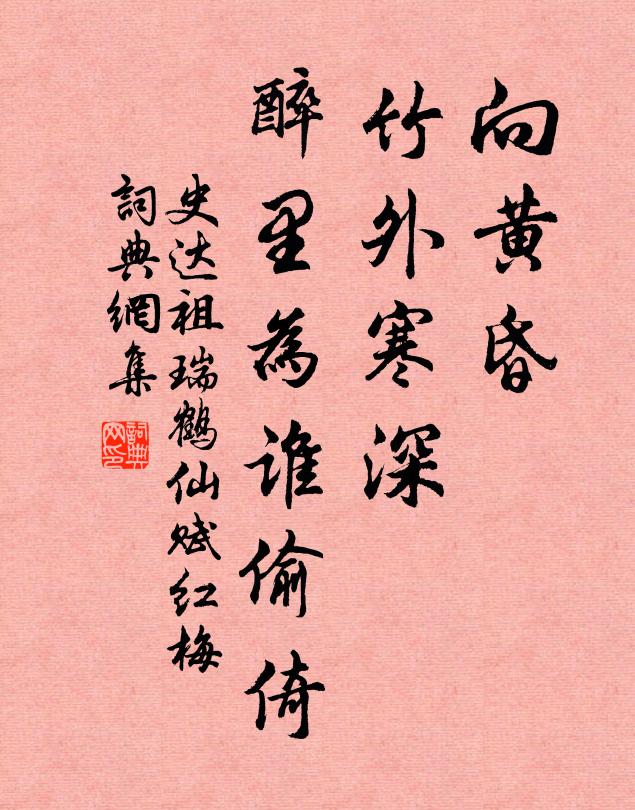 向黄昏
竹外寒深
醉里為谁偷倚
史达祖瑞鹤仙赋红梅
詞典網集
詞典
网印